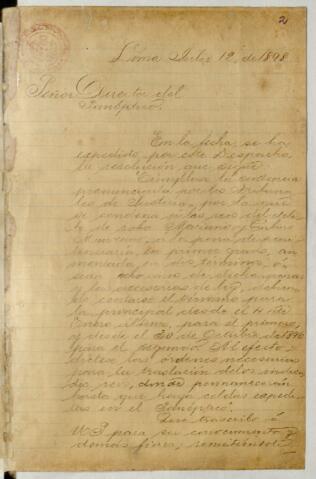 2
Lima Julio 12 de 1898
Señor Director del
Panóptico.
En la fecha, se ha
expedido por este Despacho
la resolución que sigue:
"Cumplase la sentencia
pronunciada por los Tribuna
les de Justicia, por la que
se condena a los reos del deli
to de robo Mariano y
a la pena de peni
tenciaria en primer grado, au
mentada en dos terminos, ó
sean ocho años de dicha pena
y las accesorias de ley, debien
do contarse el término para
la principal desde el 4 de
Enero último, para el primero,
y desde el 30 de Octubre de 1896
para el segundo. Al efecto
dictese las órdenes necesarias
para la traslación de los indica
dos reos, donde permanecerán
hasta que haya celdas expedi
tas en el Panóptico."
Que trascribo á
US para su conocimiento y
demas fines; remitiéndole